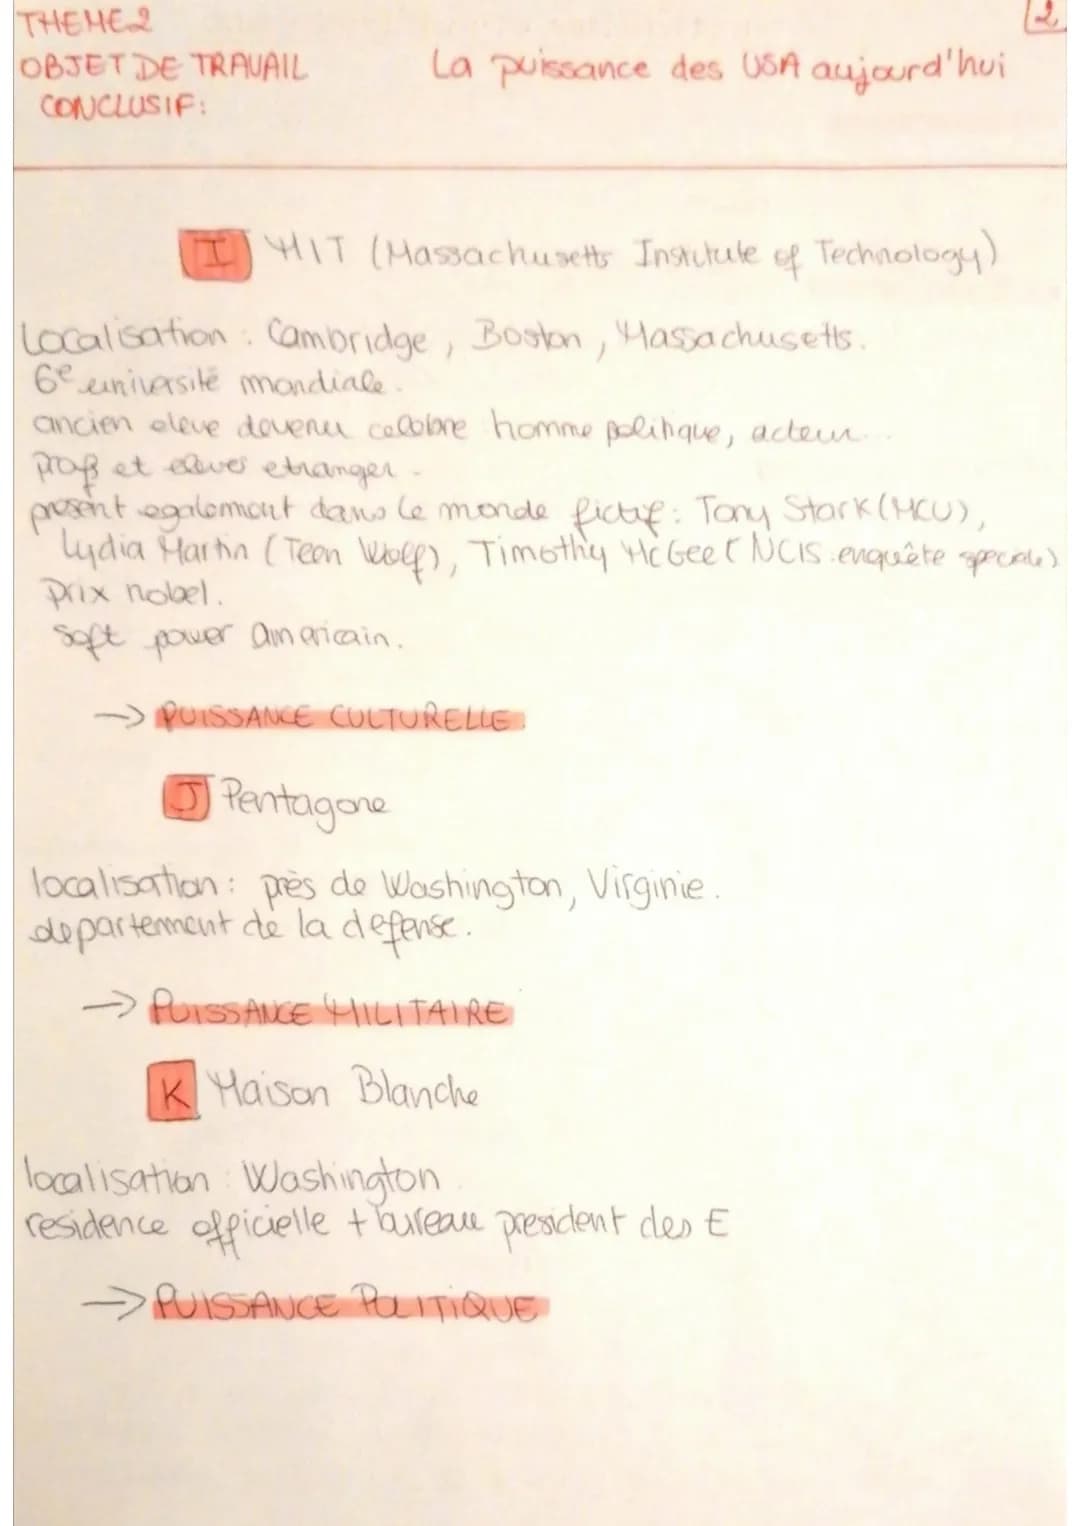 THEME 2
2
OBJET DE TRAVAIL La puissance des USA aujourd'hui
CONCLUSIF:
I MIT (Massachusetts Institute of Technology)
Localisation : Cambridge, Boston, Massachusetts.
6e université mondiale.
ancien eleve devenu celebre homme politique, acteur...
prof et eleves etranger.
present egalement dans le monde fictif: Tony Stark (MCU),
Lydia Martin (Teen Wolf), Timothy McGee ( NCIS : enquête speciale)
prix nobel.
soft power americain.
-> PUISSANCE CULTURELLE.
J Pentagone
localisation : près de Washington, Virginie.
departement de la defense.
-> PUISSANCE MILITAIRE
K Maison Blanche
localisation : Washington
residence officielle + bureau president des E
-> PUISSANCE POLITIQUE